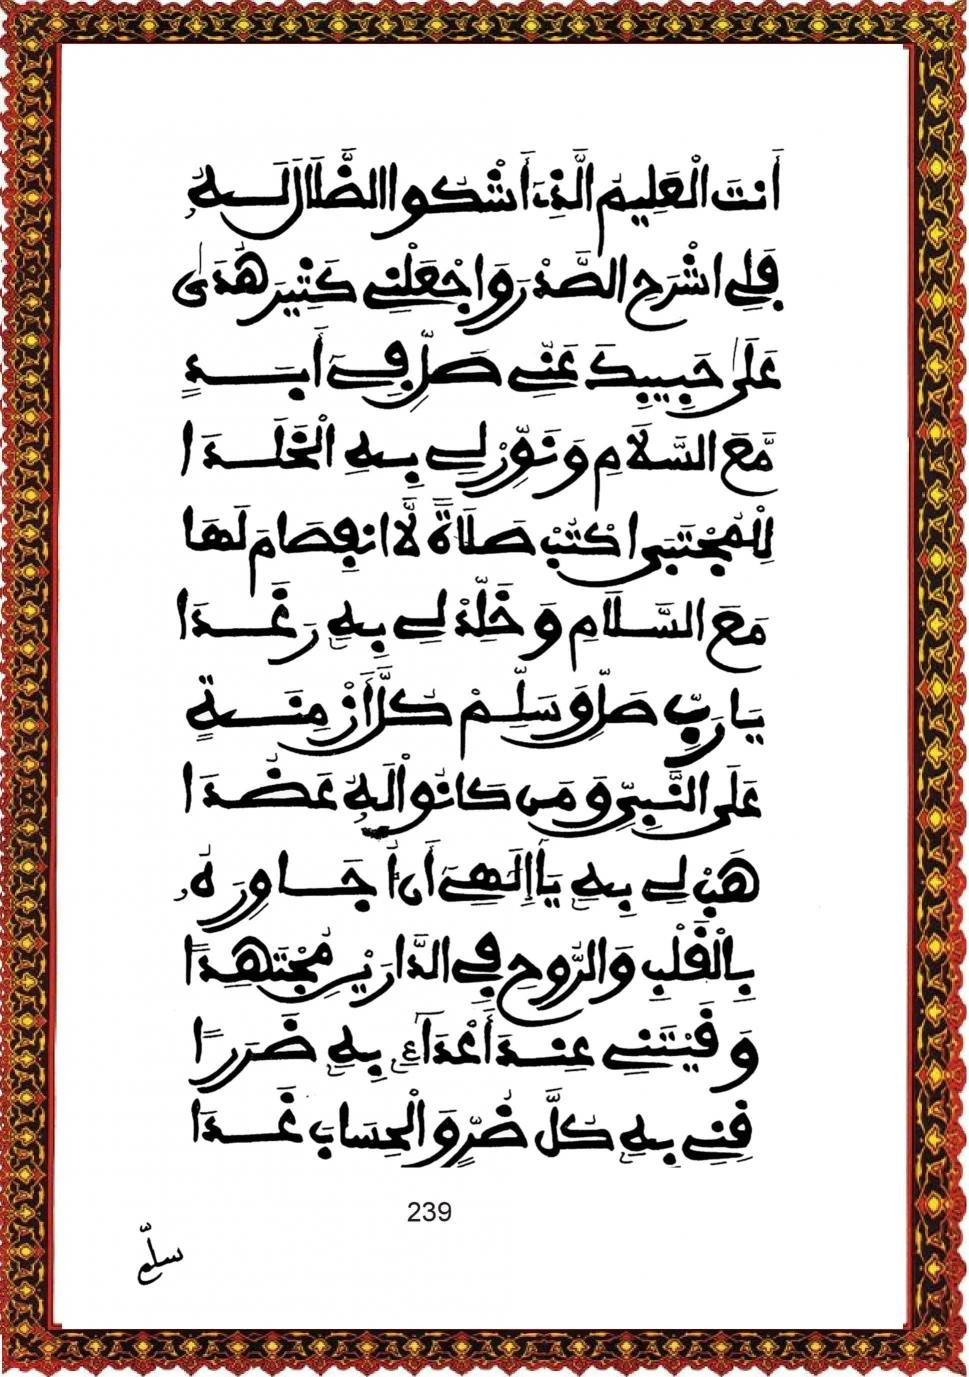 أَنتَ الْعَلِيمُ الَّذِے أَشْكُوا الضَّلَالَ لَهُ
فَلِي اشْرَحِ الصَّدْرَ وَاجْعَلْنِے كَثِيرَ هُدَى
عَلَى حَبِيبِكَ عَنِّے صَلِّ فِے أَبَدٍ
مَّعَ السَّلَامِ وَنَوِّرْ لِے بِهِ الْخَلَدَا
لِلْمُجْتَبَى اكْتُبْ صَلَاةً لَّا انفِصَامَ لَهَا
مَعَ السَّلَامِ وَخَلِّدْ لِے بِهِ رَغَدَا
يَا رَبِّ صَلِّ وَسَلِّمْ كُلَّ أَزْمِنَةٍ
عَلَى النَّبِيِّ وَمَن كَانُوا لَهُ عَضُدَا
هَبْ لِے بِهِ يَا إِلَهِے أَن أُجَاوِرَهُ
بِالْقَلْبِ وَالرُّوحِ فِے الدَّارَيْنِ مُجْتَهِدًا
وَقَيْتَنِے عِندَ أَعْدَآءِ بِهِ ضَرَرًا
فَقِنِے بِهِ كُلَّ ضُرٍّ وَالْحِسَابَ غَدَا
239
سلّم